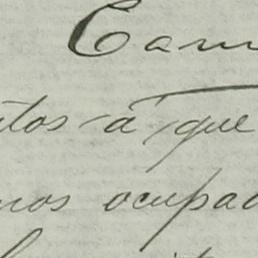 Cam
tos á que
nos ocupad